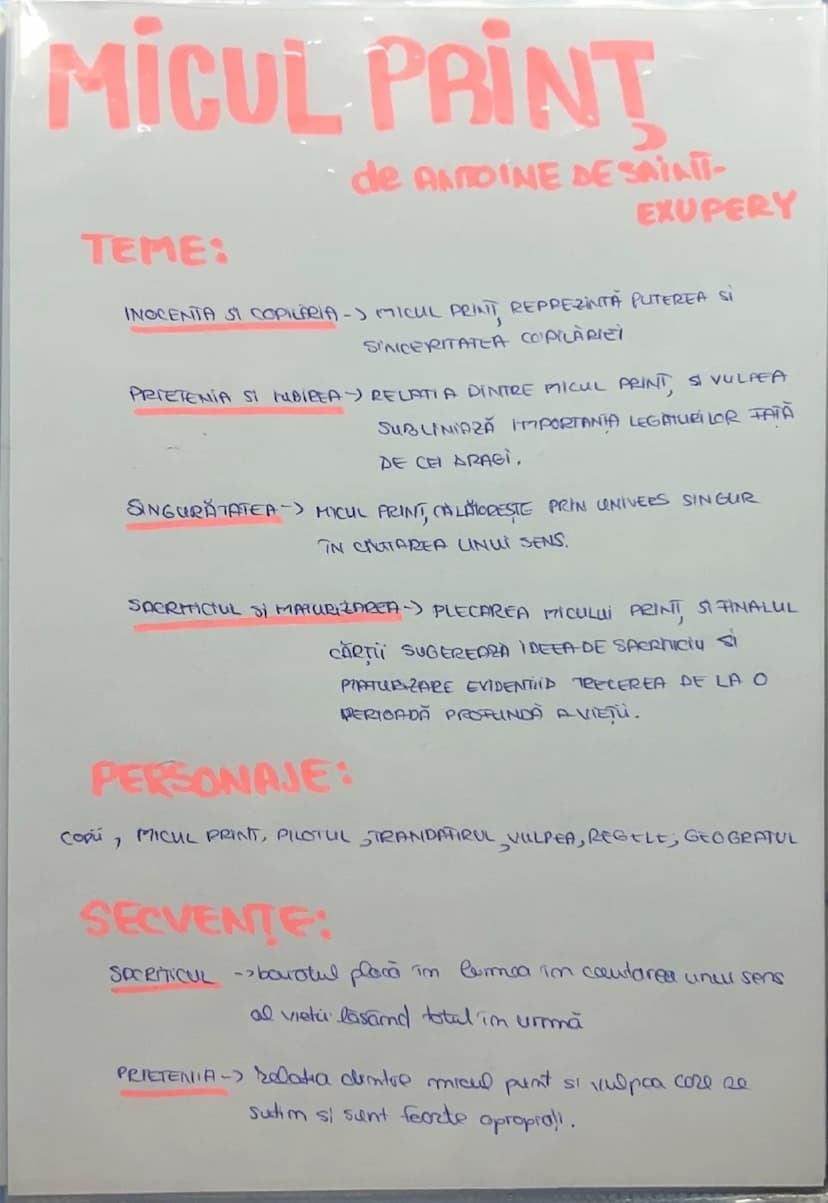 MICUL PRINȚ
de ANTOINE DE SAINT-
EXUPERY
TEME:
INOCENTA SI COPILĂRIA -> MICUL PRINȚ REPREZINTĂ PUTEREA SI
SINCERITATEA COPILĂRIEI
PRIETENIA SI IUBIREA -> RELATIA DINTRE MICUL PRINȚ SI VULPEA
SUBLINIAZĂ IMPORTANTA LEGATURILOR FATĂ
DE CEI DRAGI.
SINGURĂTATEA -> MICUL PRINȚ CĂLĂTOREȘTE PRIN UNIVERS SINGUR
ÎN CĂUTAREA UNUI SENS.
SACRIFICIUL SI MATURIZAREA -> PLECAREA MICULUI PRINȚ SI FINALUL
CĂRȚII SUGEREAZA IDEEA DE SACRIFICIU SI
MATURIZARE EVIDENTIID TRECEREA DE LA O
PERIOADĂ PROFUNDĂ A VIEȚII.
PERSONAJE:
COPII, MICUL PRINT, PILOTUL, TRANDAFIRUL, VULPEA, REGELE, GEOGRAFUL
SECVENȚE:
SACRIFICUL -> pleacă în lumea in cautarea unui sens
al vietii lăsând totul in urmă
PRIETENIA -> Relatia dintre micul print si vulpea care se
si sunt foarte apropiați.